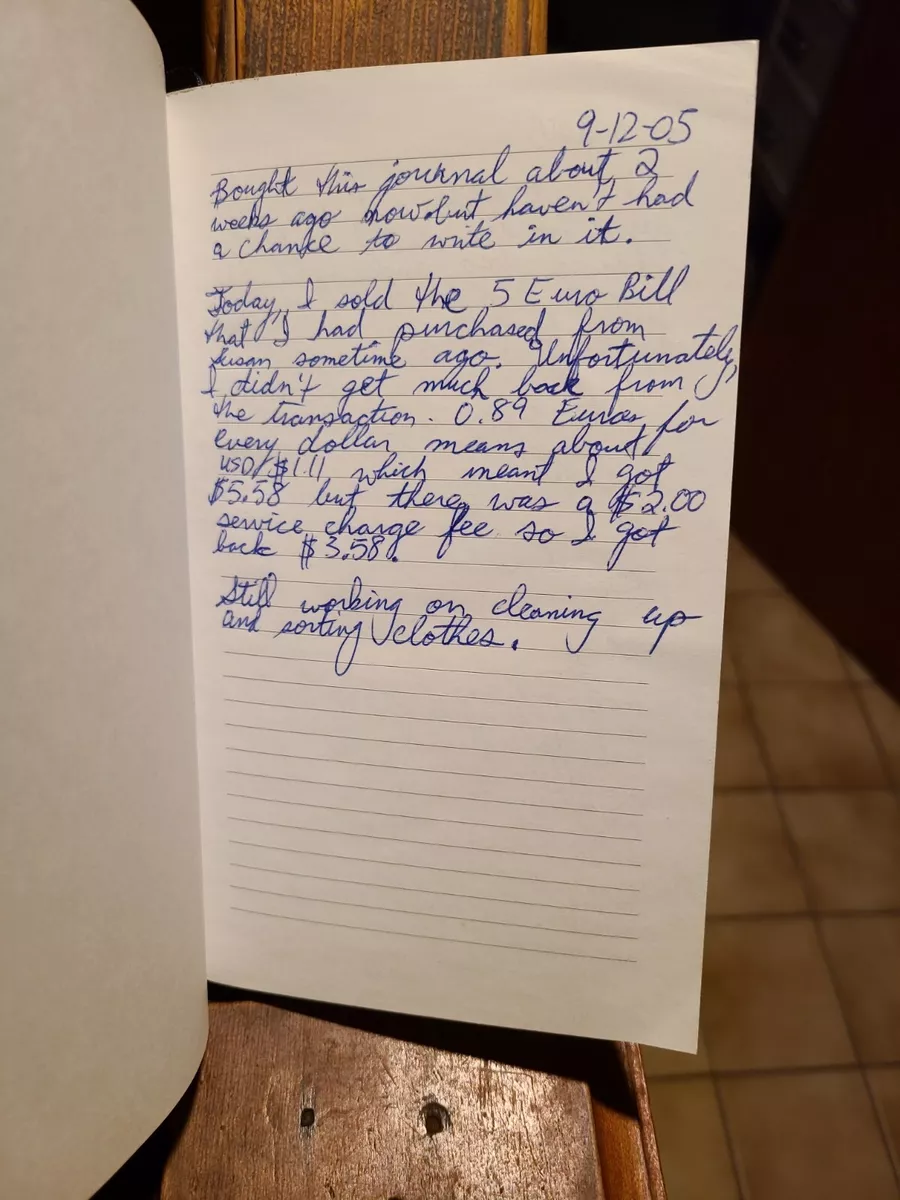 9-12-05
Bought this journal about 2
weeks ago now but haven't had
a chance to write in it.
Today, I sold the 5 Euro Bill
that I had purchased from
Susan sometime ago. Unfortunately,
I didn't get much back from
the transaction. 0.89 Euros for
every dollar means about
USD/$1.11 which meant I got
$5.58 but there was a $2.00
service charge fee so I got
back $3.58.
Still working on cleaning up
and sorting clothes.